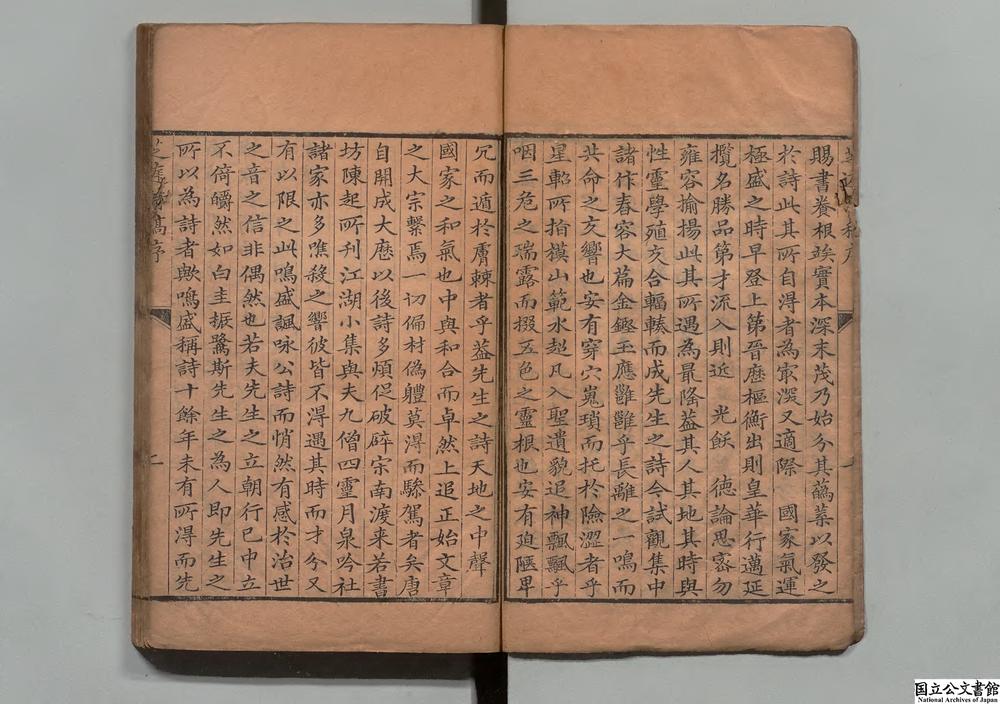 賜書養根竢實本深末茂乃始分其蘤蕊以發之
於詩此其所自得者為冣深又適際　國家氣運
極盛之時早登上第晉歷樞衡出則皇華行邁延
攬名勝品第才流入則近　光飫　德論思密勿
雍容揄揚此其所遇為最隆益其人其地其時與
性靈學殖交合輻輳而成先生之詩今試觀集中
諸作春容大篇金鏗玉應雝雝乎長離之一鳴而
共命之交響也安有穿穴嵬瑣而托於險澀者乎
星軺所指模山範水超凡入聖遺貌追神飄飄乎
咽三危之瑞露而掇五色之靈根也安有迫陿畀
冗而遁於膚棘者乎益先生之詩天地之中聲
國家之和氣也中與和合而卓然上追正始文章
之大宗繫焉一切偏材偽體莫得而驂駕者矣唐
自開成大歷以後詩多煩促破碎宗南渡來若書
坊陳起所刊江湖小集與夫九僧四靈月泉吟社
諸家亦多噍殺之響彼皆不得遇其時而才分又
有以限之此鳴盛諷咏公詩而悄然有感於治世
之音之信非偶然也若夫先生之立朝行已中立
不倚皭然如白圭振鷺斯先生之為人即先生之
所以為詩者歟鳴盛稱詩十餘年未有所得而先
芝庭 序
二
国立公文書館
National Archives of Japan